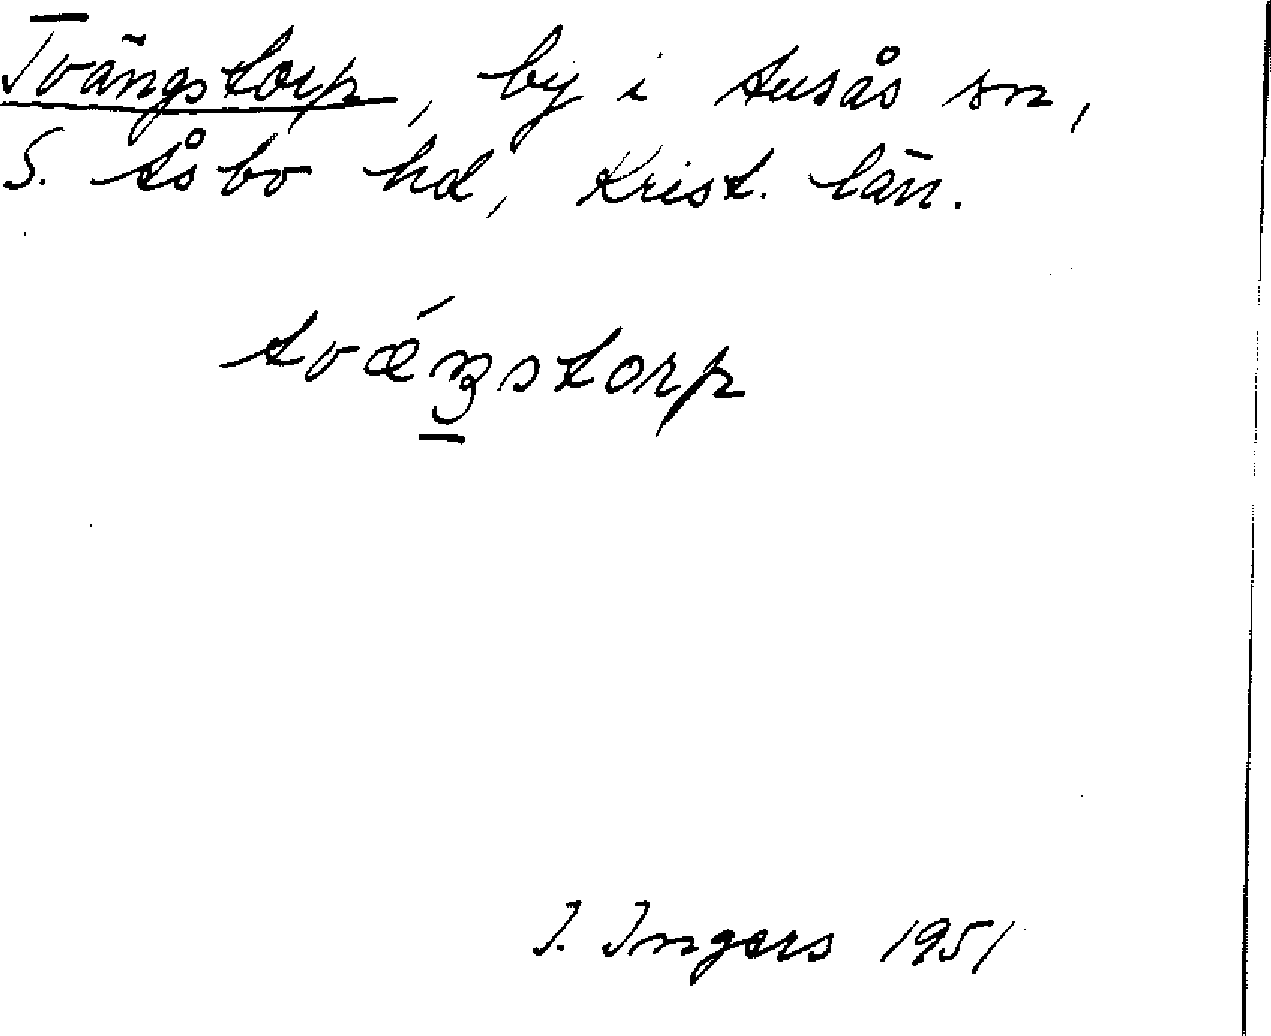 Tvängstorp, by i Ausås sn,
S. Åsbo hd, Krist. län.
tvæ´ŋstorp
I. Ingers 1951